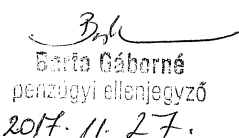 Barta Gáborné
pénzügyi ellenjegyző
2017. 11. 27.